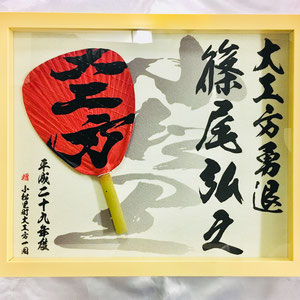 大工方勇退
篠尾弘之
大工方
平成二十九年度
贈 小松里町大工方一同